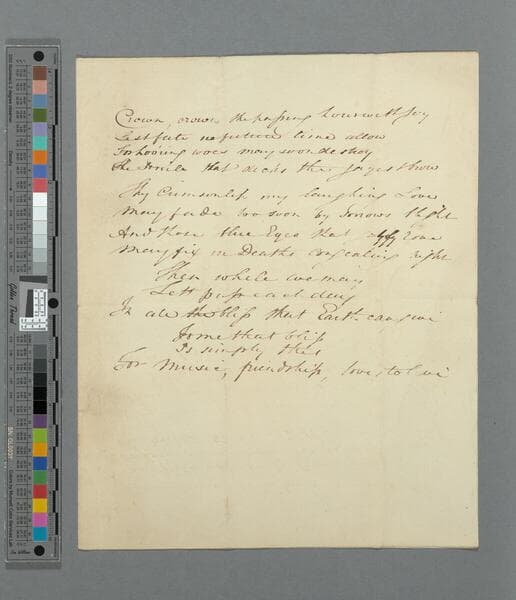 Crown, crown the passing hour with joy
Lest fate no future time allow
For hooring woes may soon destroy
The Smile that decks the joyes thow
Thy Crimson lip my laughing Love
May fade too soon by Sorrows
And those blue Eyes that love
May fix in Deaths congealing night
Then while we may
Lett pass each day
In ale the bliss that Earth can give
To me that bliss
Is simply this
For Music, friendship, love, to live
Golden Thread